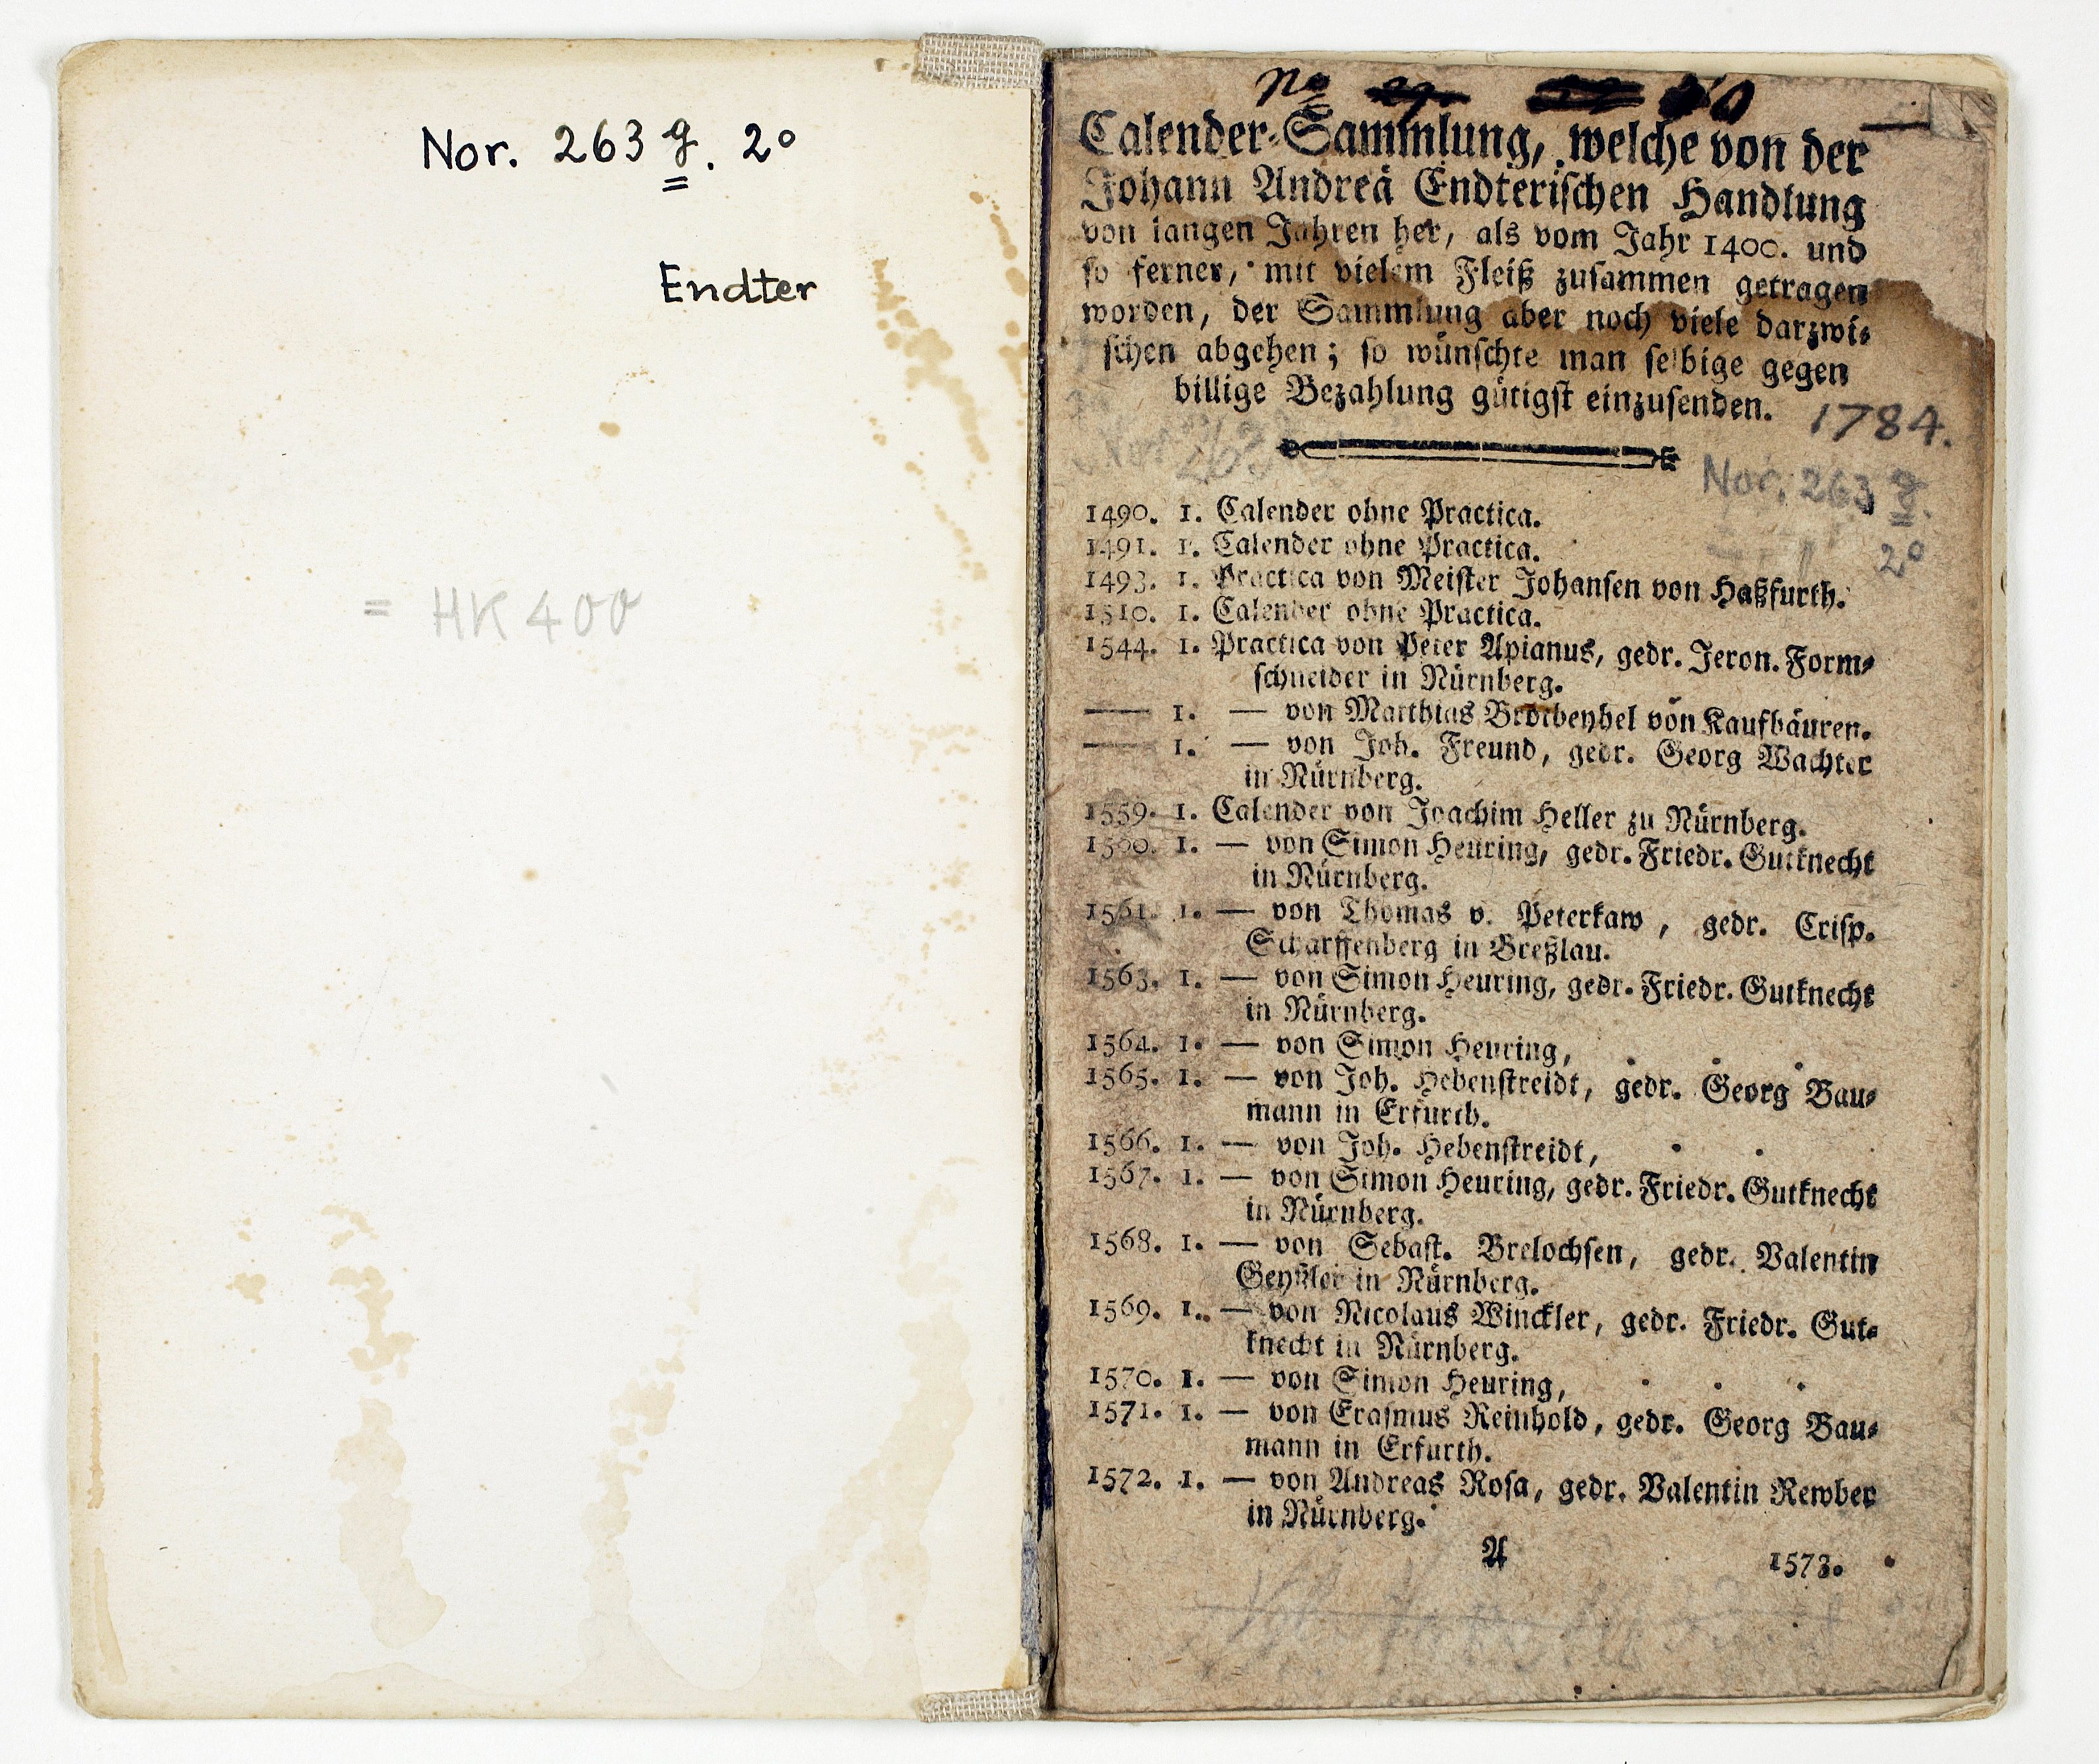 Nor. 263 g. 2º
Endter
= HK 400
No
Calender-Sammlung, welche von der
Johann Andreä Endterischen Handlung
von langen Jahren her, als vom Jahr 1400. und
so ferner, mit vielem Fleiß zusammen getragen
worden, der Sammlung aber noch viele darzwi-
schen abgehen; so wünschte man selbige gegen
billige Bezahlung gütigst einzusenden.
1784.
Nor. 263 g.
2º
1490. 1. Calender ohne Practica.
1491. 1. Calender ohne Practica.
1493. 1. Practica von Meister Johansen von Haßfurth.
1510. 1. Calender ohne Practica.
1544. 1. Practica von Peter Apianus, gedr. Jeron. Form-
schneider in Nürnberg.
— 1. — von Matthias Brotbeyhel von Kaufbäuren.
— 1. — von Joh. Freund, gedr. Georg Wachter
in Nürnberg.
1559. 1. Calender von Joachim Heller zu Nürnberg.
1560. 1. — von Simon Heuring, gedr. Friedr. Gutknecht
in Nürnberg.
1561. 1. — von Thomas v. Peterkaw, gedr. Crisp.
Scharffenberg in Breßlau.
1563. 1. — von Simon Heuring, gedr. Friedr. Gutknecht
in Nürnberg.
1564. 1. — von Simon Heuring,
1565. 1. — von Joh. Hebenstreidt, gedr. Georg Bau-
mann in Erfurth.
1566. 1. — von Joh. Hebenstreidt,
1567. 1. — von Simon Heuring, gedr. Friedr. Gutknecht
in Nürnberg.
1568. 1. — von Sebast. Brelochsen, gedr. Valentin
Geyßler in Nürnberg.
1569. 1. — von Nicolaus Winckler, gedr. Friedr. Gut-
knecht in Nürnberg.
1570. 1. — von Simon Heuring,
1571. 1. — von Erasmus Reinhold, gedr. Georg Bau-
mann in Erfurth.
1572. 1. — von Andreas Rosa, gedr. Valentin Rewber
in Nürnberg.
A 1573.